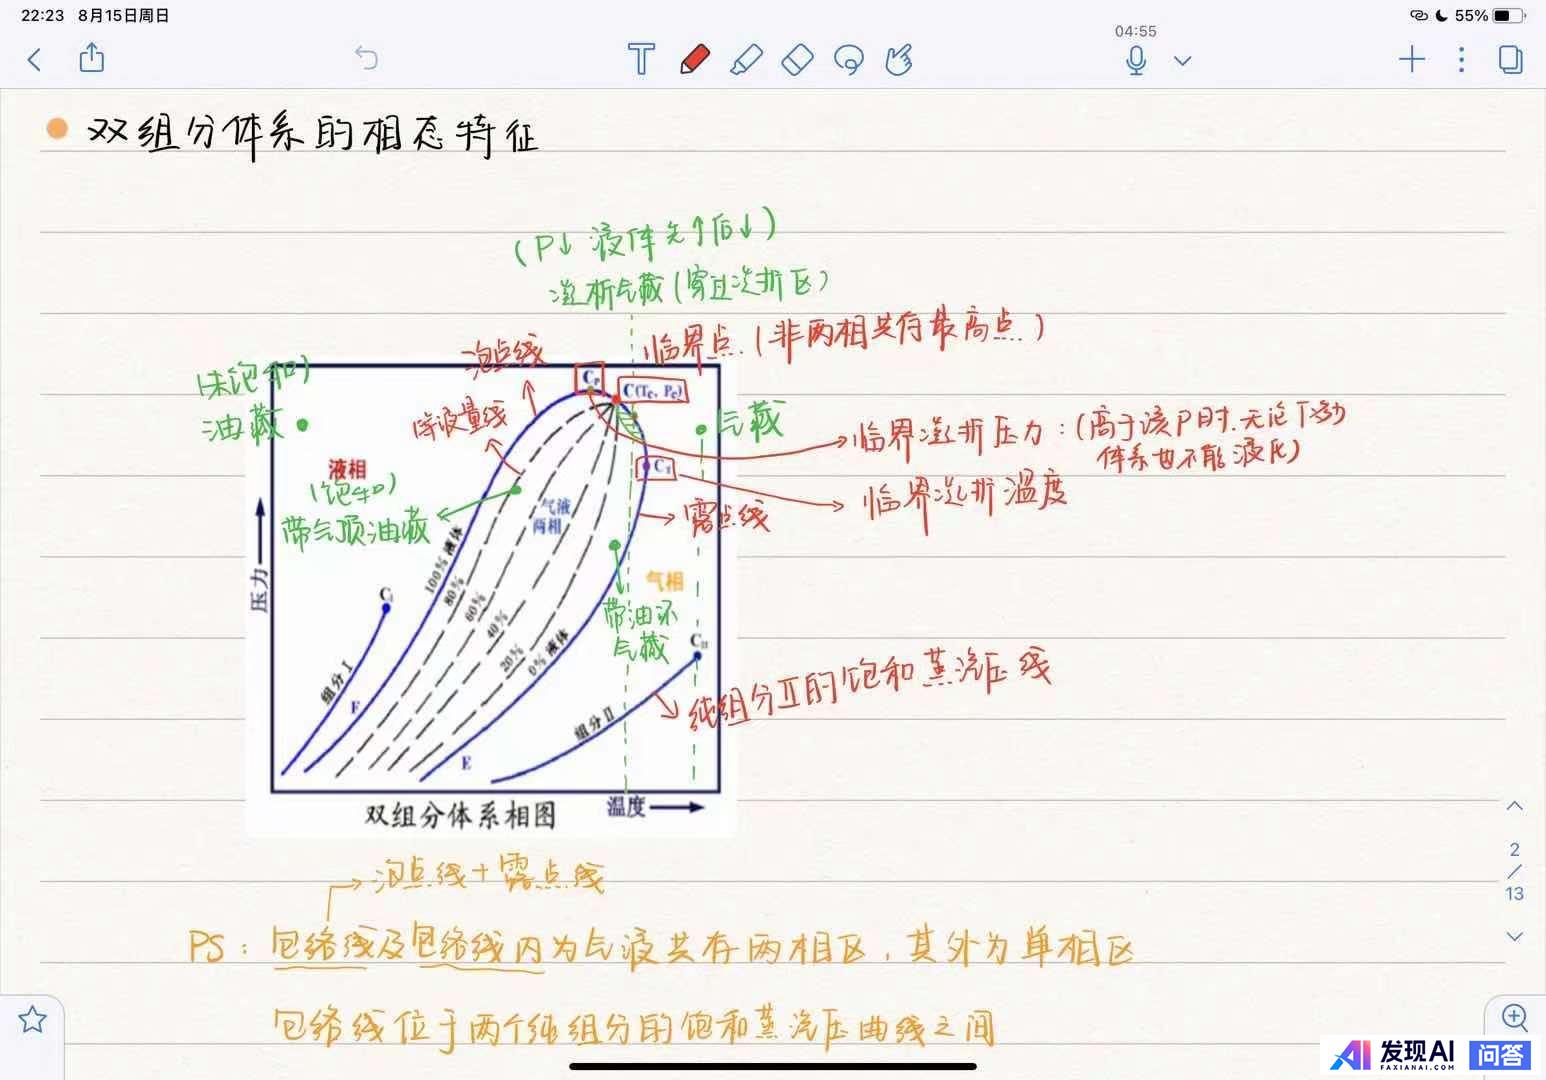 22:23 8月15日周日
55%
04:55
双组分体系的相态特征
(P↓ 液体先↑后↓)
凝析气藏(穿过凝析区)
泡点线
临界点(非两相共存最高点)
(未饱和)
油藏
等液量线
CP
C(Tc, Pc)
气藏
临界凝析压力:(高于该P时,无论T多少
体系也不能液化)
液相
(饱和)
带气顶油藏
气液
两相
CT
临界凝析温度
露点线
压力
100%液体
80%
60%
40%
20%
0%液体
气相
带油环
气藏
CI
组分 I
F
E
CII
组分 II
纯组分II的饱和蒸汽压线
双组分体系相图
温度
泡点线+露点线
PS:包络线及包络线内为气液共存两相区,其外为单相区
包络线位于两个纯组分的饱和蒸汽压曲线之间
2
13
发现AI 问答
FAXIANAI.COM